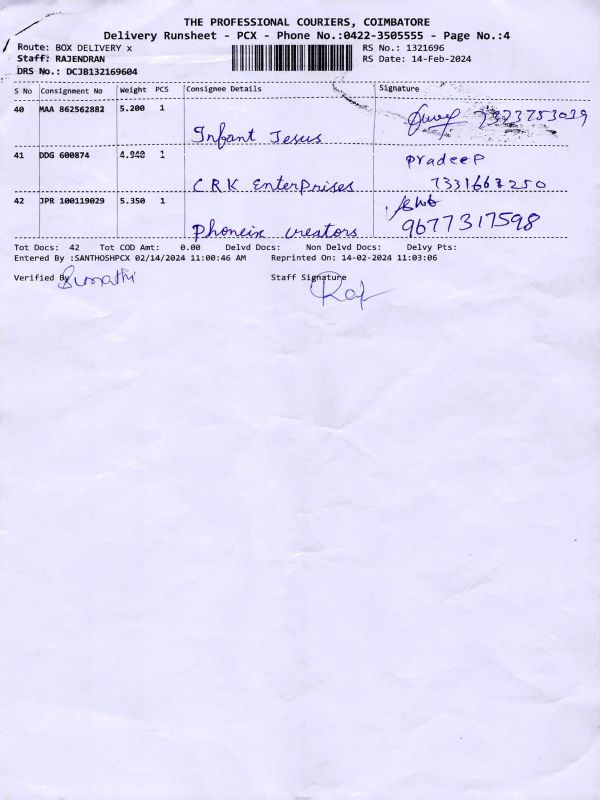 THE PROFESSIONAL COURIERS, COIMBATORE
Delivery Runsheet - PCX - Phone No.:0422-3505555 - Page No.:4
Route: BOX DELIVERY x
RS No.: 1321696
Staff: RAJENDRAN
RS Date: 14-Feb-2024
DRS No.: DCJB132169604
S No Consignment No Weight PCS Consignee Details Signature
40 MAA 862562882 5.200 1
Infant Jesus
41 DDG 600874 4.940 1 Pradeep
CRK Enterprises 7331663250
42 JPR 100119029 5.350 1
Phoneix creators 9677317598
Tot Docs: 42 Tot COD Amt: 0.00 Delvd Docs: Non Delvd Docs: Delvy Pts:
Entered By :SANTHOSHPCX 02/14/2024 11:00:46 AM Reprinted On: 14-02-2024 11:03:06
Verified By Sumathi Staff Signature
Raj